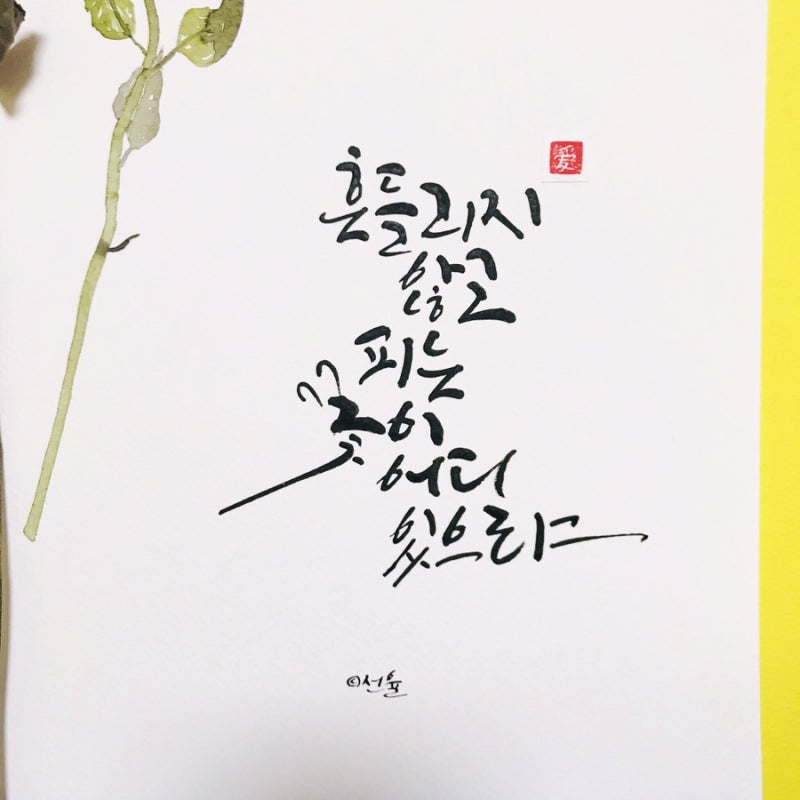 爱
흔들리지
않고
피는
꽃이
어디
있으랴
©선율